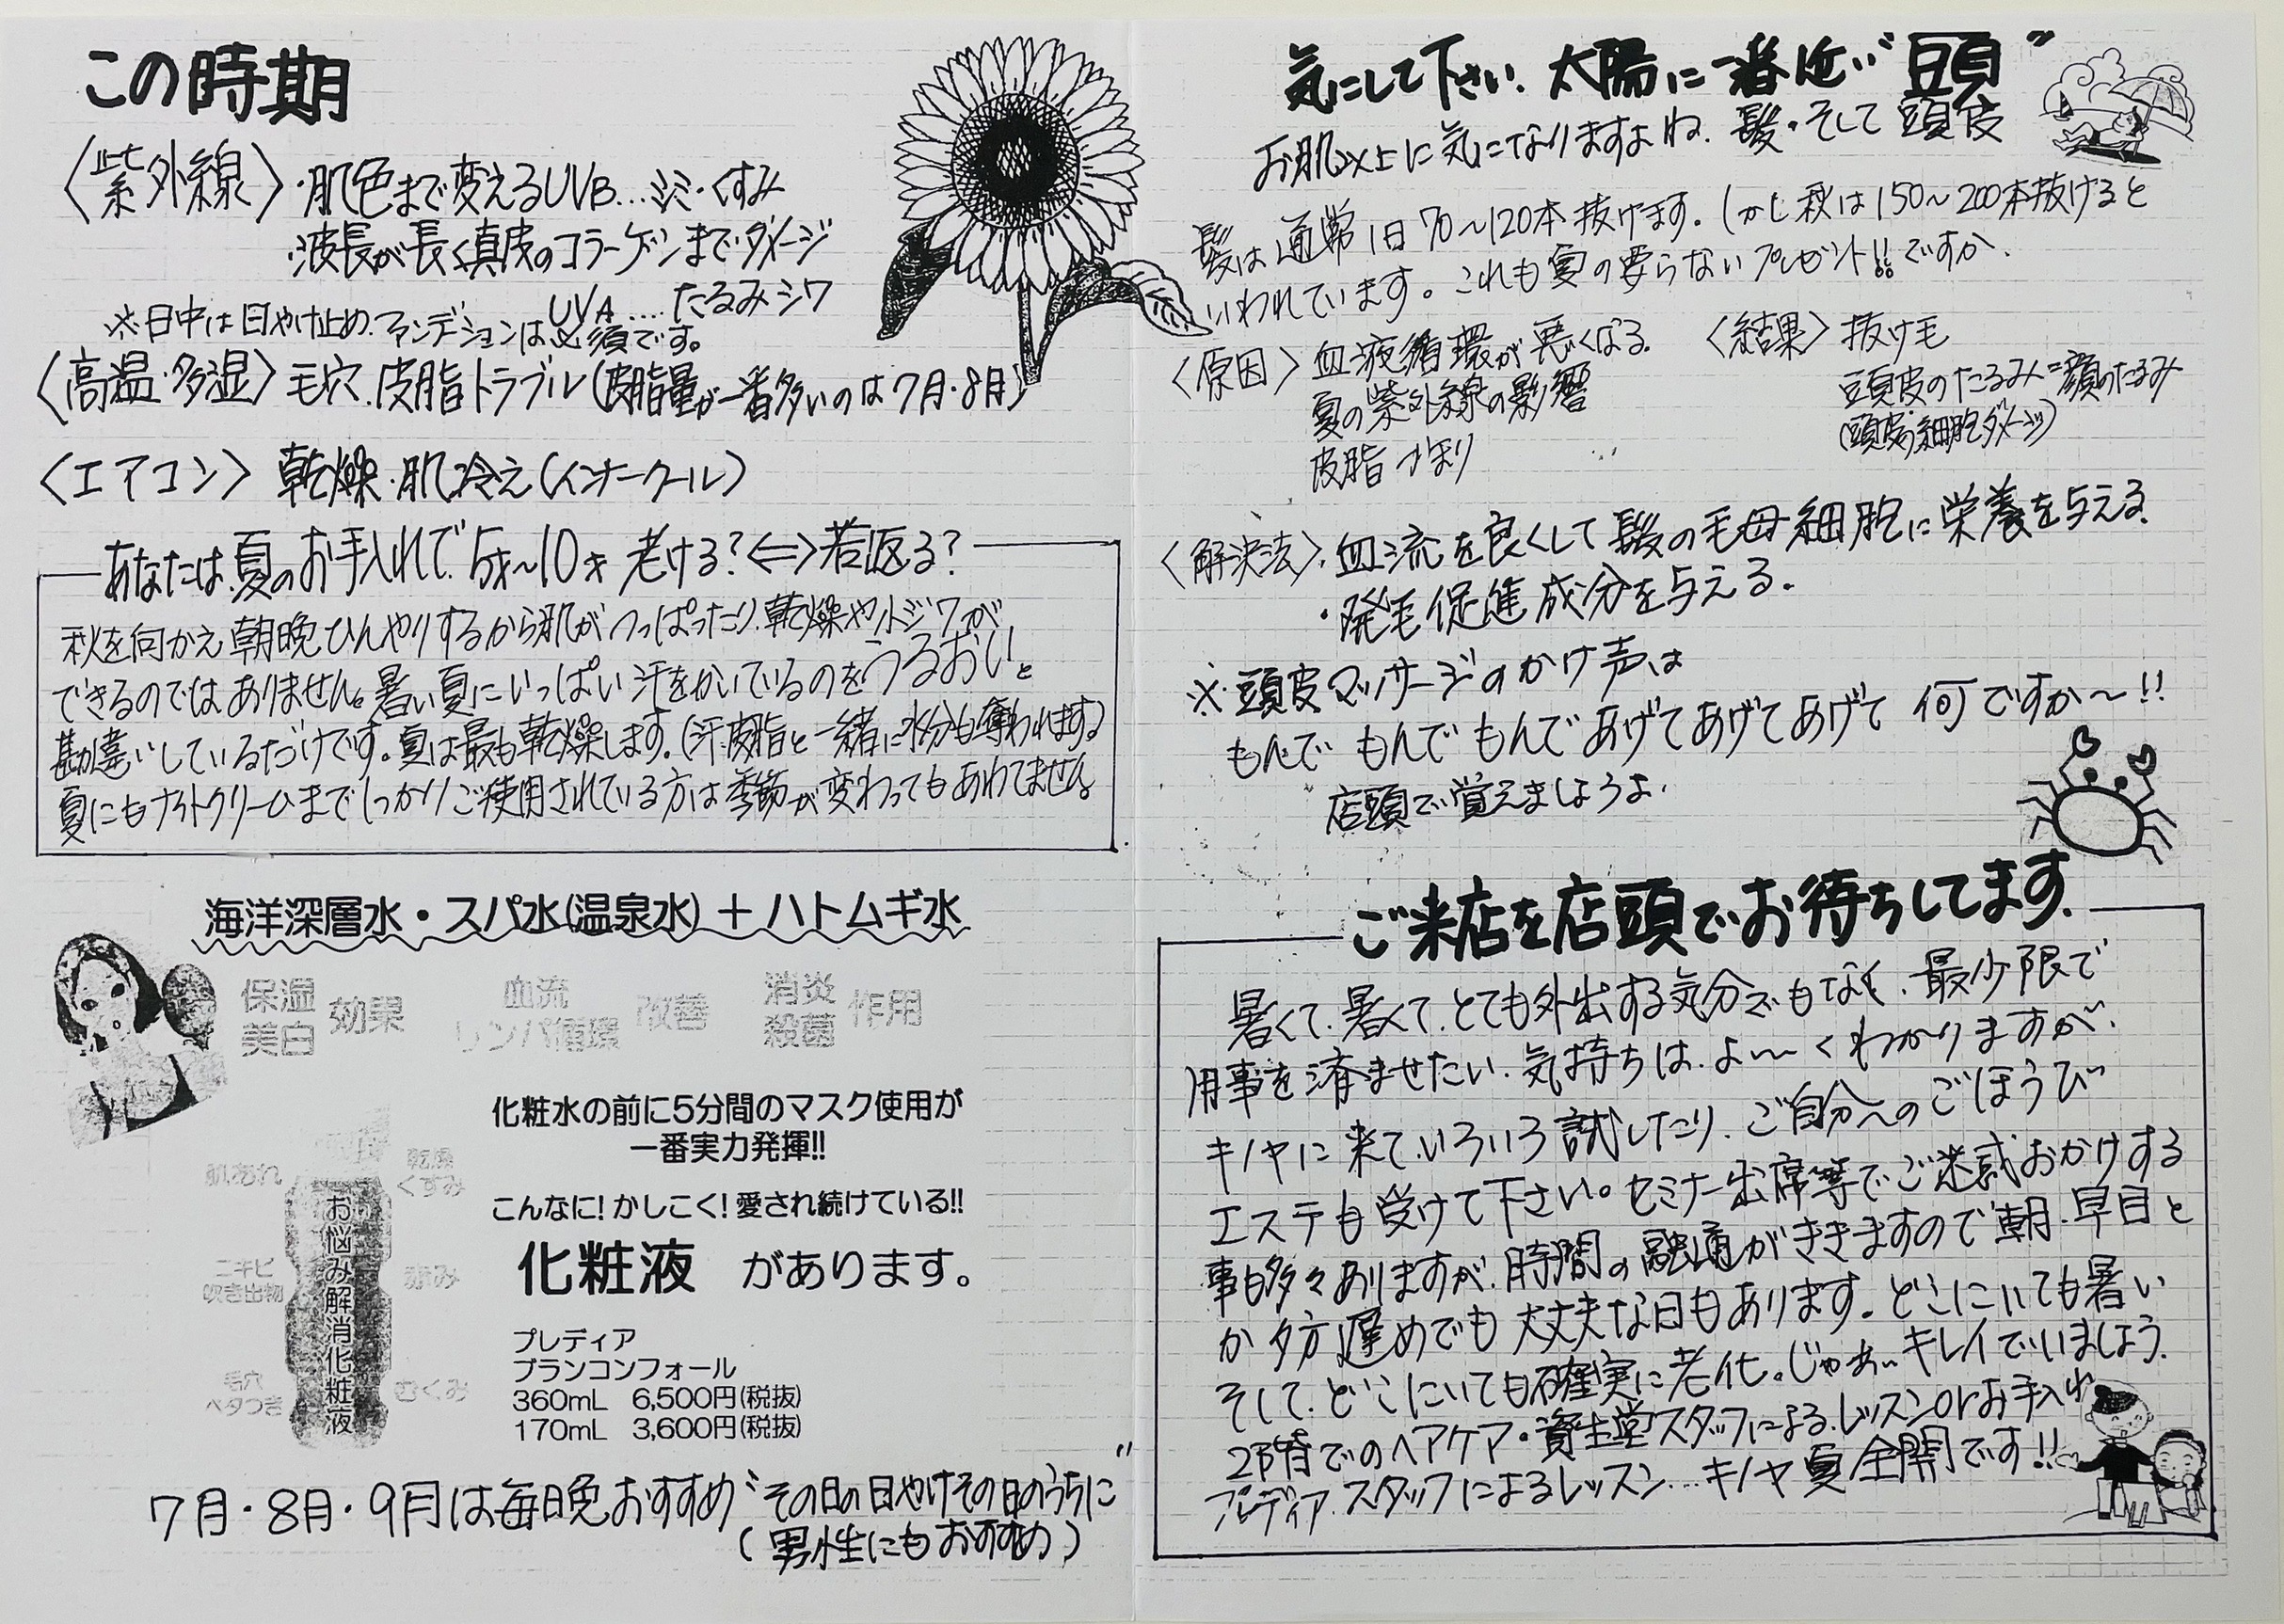 この時期
〈紫外線〉・肌色まで変えるUVB…シミ・くすみ
・波長が長く真皮のコラーゲンまでダメージ
UVA‥‥たるみシワ
※日中は日やけ止め、ファンデションは必須です。
〈高温・多湿〉毛穴、皮脂トラブル(皮脂量が一番多いのは7月・8月)
〈エアコン〉乾燥・肌冷え(インナークール)
あなたは、夏のお手入れで5才〜10才老ける?⇔若返る?
秋を向かえ朝晩ひんやりするから肌がつっぱったり、乾燥や小ジワが
できるのではありません。暑い夏にいっぱい汗をかいているのをうるおいと
勘違いしているだけです。夏は最も乾燥します。(汗、皮脂と一緒に水分も奪われます)
夏にもナイトクリームまでしっかりご使用されている方は季節が変わってもあわてません。
海洋深層水・スパ水(温泉水)+ハトムギ水
保湿 美白 効果
血流 リンパ循環 改善
消炎 殺菌 作用
化粧水の前に5分間のマスク使用が
一番実力発揮!!
こんなに!かしこく!愛され続けている!!
化粧液 があります。
肌あれ
乾燥 くすみ
お悩み解消化粧液
ニキビ 吹き出物
赤み
毛穴 ベタつき
むくみ
プレディア
ブランコンフォール
360mL 6,500円(税抜)
170mL 3,600円(税抜)
7月・8月・9月は毎晩おすすめ“その日の日やけその日のうちに”
(男性にもおすすめ)
気にして下さい、太陽に一番近い“頭”
お肌以上に気になりますよね、髪・そして頭皮
髪は通常1日70〜120本抜けます。しかし秋は150〜200本抜けると
いわれています。これも夏の要らないプレゼント!!ですか、
〈原因〉血液循環が悪くなる。
夏の紫外線の影響
皮脂づまり
〈結果〉抜け毛
頭皮のたるみ=顔のたるみ
(頭皮の細胞ダメージ)
〈解決法〉・血流を良くして髪の毛母細胞に栄養を与える。
・発毛促進成分を与える。
※頭皮マッサージのかけ声は
もんで もんで もんで あげて あげて あげて 何ですか〜!!
店頭で覚えましょうよ。
ご来店を店頭でお待ちしてます。
暑くて、暑くて、とても外出する気分でもなく、最少限で
用事を済ませたい、気持ちは、よ〜くわかりますが、
キノヤに来て、いろいろ試したり、ご自分へのごほうび
エステも受けて下さい。セミナー出席等でご迷惑おかけする
事も多々ありますが、時間の融通がききますので朝、早目と
か夕方遅めでも大丈夫な日もあります。どこにいても暑い
そして、どこにいても確実に老化。じゃあ、キレイでいましょう。
2階でのヘアケア・資生堂スタッフによるレッスンorお手入れ
プレディア、スタッフによるレッスン…キノヤ夏全開です!!